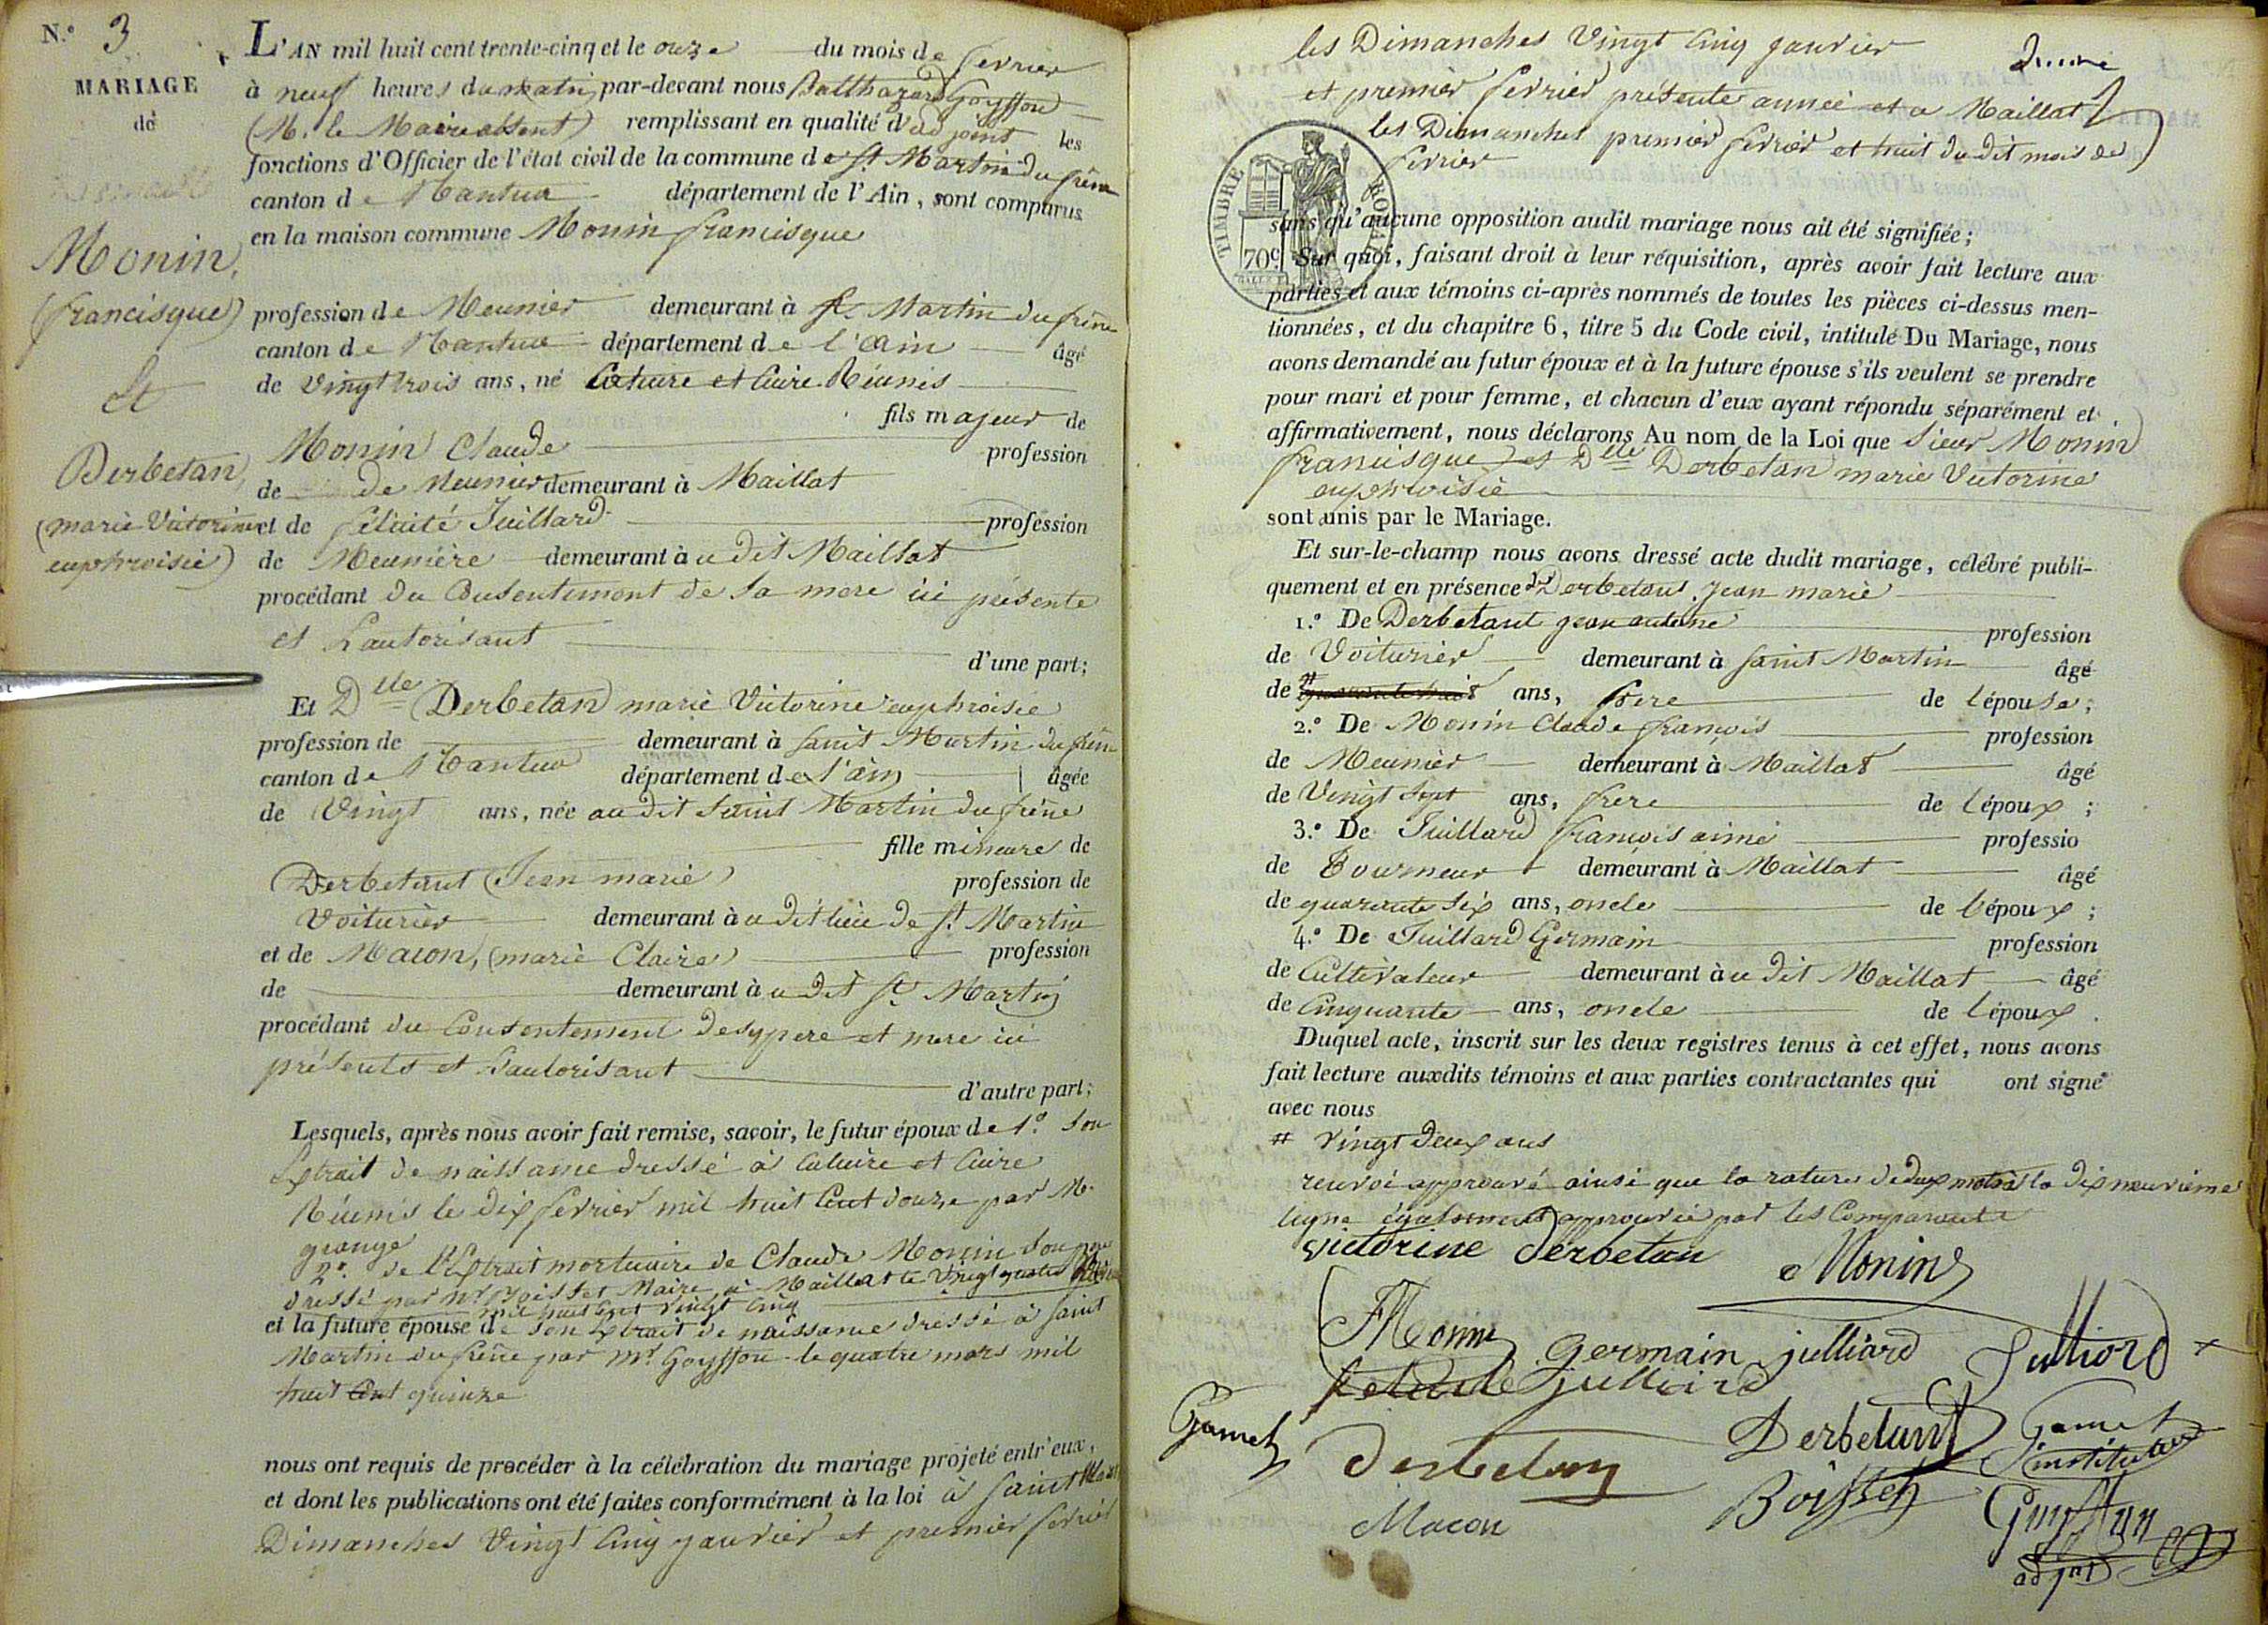 N.° 3
MARIAGE
de
Monin,
(francisque)
Et
Derbetan,
(marie Victorine
euphroisie)
L'AN mil huit cent trente-cinq et le onze du mois de fevrier
à neuf heures du matin par-devant nous Balthazard Goyffon
(M. le Maire absent) remplissant en qualité d'adjoint les
fonctions d'Officier de l'état civil de la commune de St. Martin du frêne
canton de Nantua département de l'Ain, sont comparus
en la maison commune Monin francisque
profession de Meunier demeurant à St. Martin du frêne
canton de Nantua département de l'ain âgé
de vingt trois ans, né Caluire et Cuire Réunis
fils majeur de
Monin Claude profession
de de Meunier demeurant à Maillat
et de félicité Juillard profession
de Meunière demeurant àu dit Maillat
procédant du Consentement de sa mere ici présente
et L'autorisant
d'une part;
Et Dlle Derbetan marie Victorine euphroisie
profession de demeurant à saint Martin du frêne
canton de Nantua département de l'ain âgée
de Vingt ans, née au dit saint Martin du frêne
fille mineure de
Derbetant (Jean marie) profession de
Voiturier demeurant àu dit lieu de St. Martin
et de Macon, (marie Claire) profession
de demeurant àu dit St Martin
procédant du Consentement de ses pere et mere ici
présents et L'autorisant
d'autre part;
Lesquels, après nous avoir fait remise, savoir, le futur époux de 1.° son
Extrait de naissance dressé à Caluire et Cuire
Réunis le dix fevrier mil huit Cent douze par M.
grange
2.° de l'Extrait mortuaire de Claude Monin son pere
dressé par Mr. Boisset Maire à Maillat le vingt quatre
mil huit Cent vingt cinq
et la future épouse de son Extrait de naissance dressé à saint
Martin du frêne par Mr. Goyffon le quatre mars mil
huit Cent quinze
nous ont requis de procéder à la célébration du mariage projeté entr'eux,
et dont les publications ont été faites conformément à la loi à saint Martin
Dimanches Vingt Cinq janvier et premier fevrier
les Dimanches Vingt Cinq janvier
et premier fevrier présente année et a Maillat
les Dimanches premier fevrier et huit du dit mois de
fevrier
TIMBRE ROYAL
70c
sans qu'aucune opposition audit mariage nous ait été signifiée;
Sur quoi, faisant droit à leur réquisition, après avoir fait lecture aux
parties et aux témoins ci-après nommés de toutes les pièces ci-dessus men-
tionnées, et du chapitre 6, titre 5 du Code civil, intitulé Du Mariage, nous
avons demandé au futur époux et à la future épouse s'ils veulent se prendre
pour mari et pour femme, et chacun d'eux ayant répondu séparément et
affirmativement, nous déclarons Au nom de la Loi que sieur Monin
francisque et Dlle Derbetan marie Victorine
euphroisie
sont unis par le Mariage.
Et sur-le-champ nous avons dressé acte dudit mariage, célébré publi-
quement et en présence Derbetant Jean marie
1.° De Derbetant jean antoine profession
de Voiturier demeurant à saint Martin âgé
de # quarante huit ans, frere de l'épouse;
2.° De Monin Claude françois profession
de Meunier demeurant à Maillat âgé
de Vingt Sept ans, frere de l'époux;
3.° De Juillard françois aimé professio
de Tourneur demeurant à Maillat âgé
de quarante six ans, oncle de l'époux;
4.° De Juillard Germain profession
de Cultivateur demeurant àu dit Maillat âgé
de Cinquante ans, oncle de l'époux.
Duquel acte, inscrit sur les deux registres tenus à cet effet, nous avons
fait lecture auxdits témoins et aux parties contractantes qui ont signé
avec nous
# vingt deux ans
renvoi approuvé ainsi que la rature de deux mots à la dix neuvieme
ligne également approuvée par les Comparants
victorine derbetan Monin
FMonin germain julliard Julliard
felicité julliard
Gamet derbetan Derbetant Gamet
instituteur
Macon Boisset Goyffon
adjnt